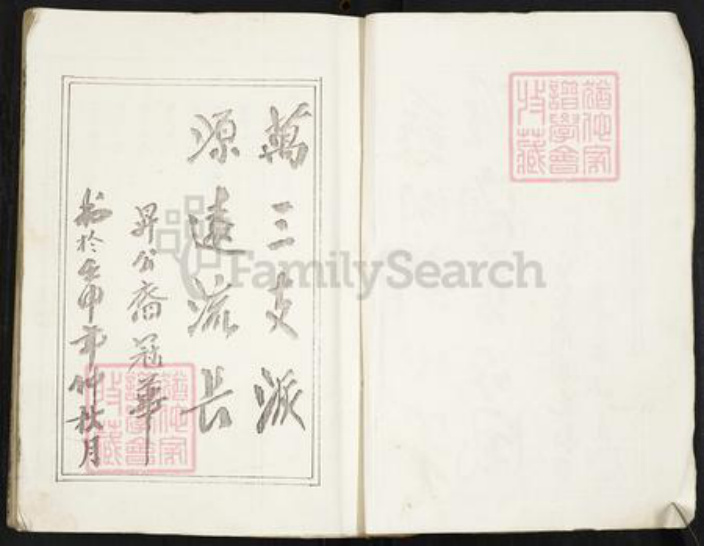 猶他家
譜學會
特藏
萬三支派
源遠流長
昇公裔冠華
於壬申年仲秋月
猶他家
譜學會
特藏
FamilySearch